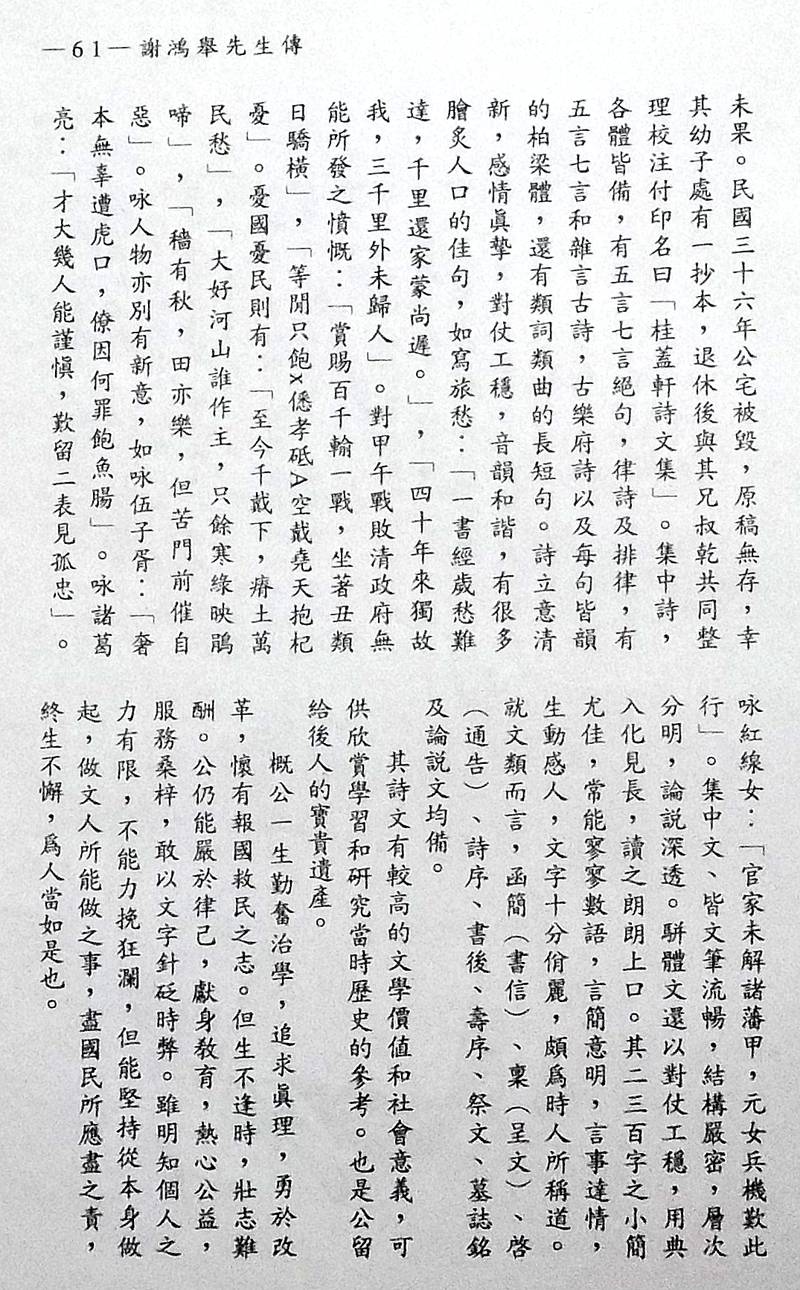 —61—謝鴻舉先生傳
未果。民國三十六年公宅被毀,原稿無存,幸
其幼子處有一抄本,退休後與其兄叔乾共同整
理校注付印名曰「桂蓋軒詩文集」。集中詩,
各體皆備,有五言七言絕句,律詩及排律,有
五言七言和雜言古詩,古樂府詩以及每句皆韻
的柏梁體,還有類詞類曲的長短句。詩立意清
新,感情眞摯,對仗工穩,音韻和諧,有很多
膾炙人口的佳句,如寫旅愁:「一書經歲愁難
達,千里還家蒙尚遲。」,「四十年來獨故
我,三千里外未歸人」。對甲午戰敗清政府無
能所發之憤慨:「賞賜百千輸一戰,坐著丑類
日驕橫」,「等閒只飽x僁孝砥A空戴堯天抱杞
憂」。憂國憂民則有:「至今千戴下,瘠土萬
民愁」,「大好河山誰作主,只餘寒綠映鵑
啼」,「穡有秋,田亦樂,但苦門前催自
惡」。咏人物亦別有新意,如咏伍子胥:「奢
本無辜遭虎口,僚因何罪飽魚腸」。咏諸葛
亮:「才大幾人能謹愼,歎留二表見孤忠」。
咏紅線女:「官家未解諸藩甲,元女兵機歎此
行」。集中文、皆文筆流暢,結構嚴密,層次
分明,論說深透。駢體文還以對仗工穩,用典
入化見長,讀之朗朗上口。其二三百字之小簡
尤佳,常能寥寥數語,言簡意明,言事達情,
生動感人,文字十分俏麗,頗爲時人所稱道。
就文類而言,函簡(書信)、稟(呈文)、啓
(通告)、詩序、書後、壽序、祭文、墓誌銘
及論說文均備。
其詩文有較高的文學價值和社會意義,可
供欣賞學習和研究當時歷史的參考。也是公留
給後人的寶貴遺產。
概公一生勤奮治學,追求眞理,勇於改
革,懷有報國救民之志。但生不逢時,壯志難
酬。公仍能嚴於律己,獻身教育,熱心公益,
服務桑梓,敢以文字針砭時弊。雖明知個人之
力有限,不能力挽狂瀾,但能堅持從本身做
起,做文人所能做之事,盡國民所應盡之責,
終生不懈,爲人當如是也。